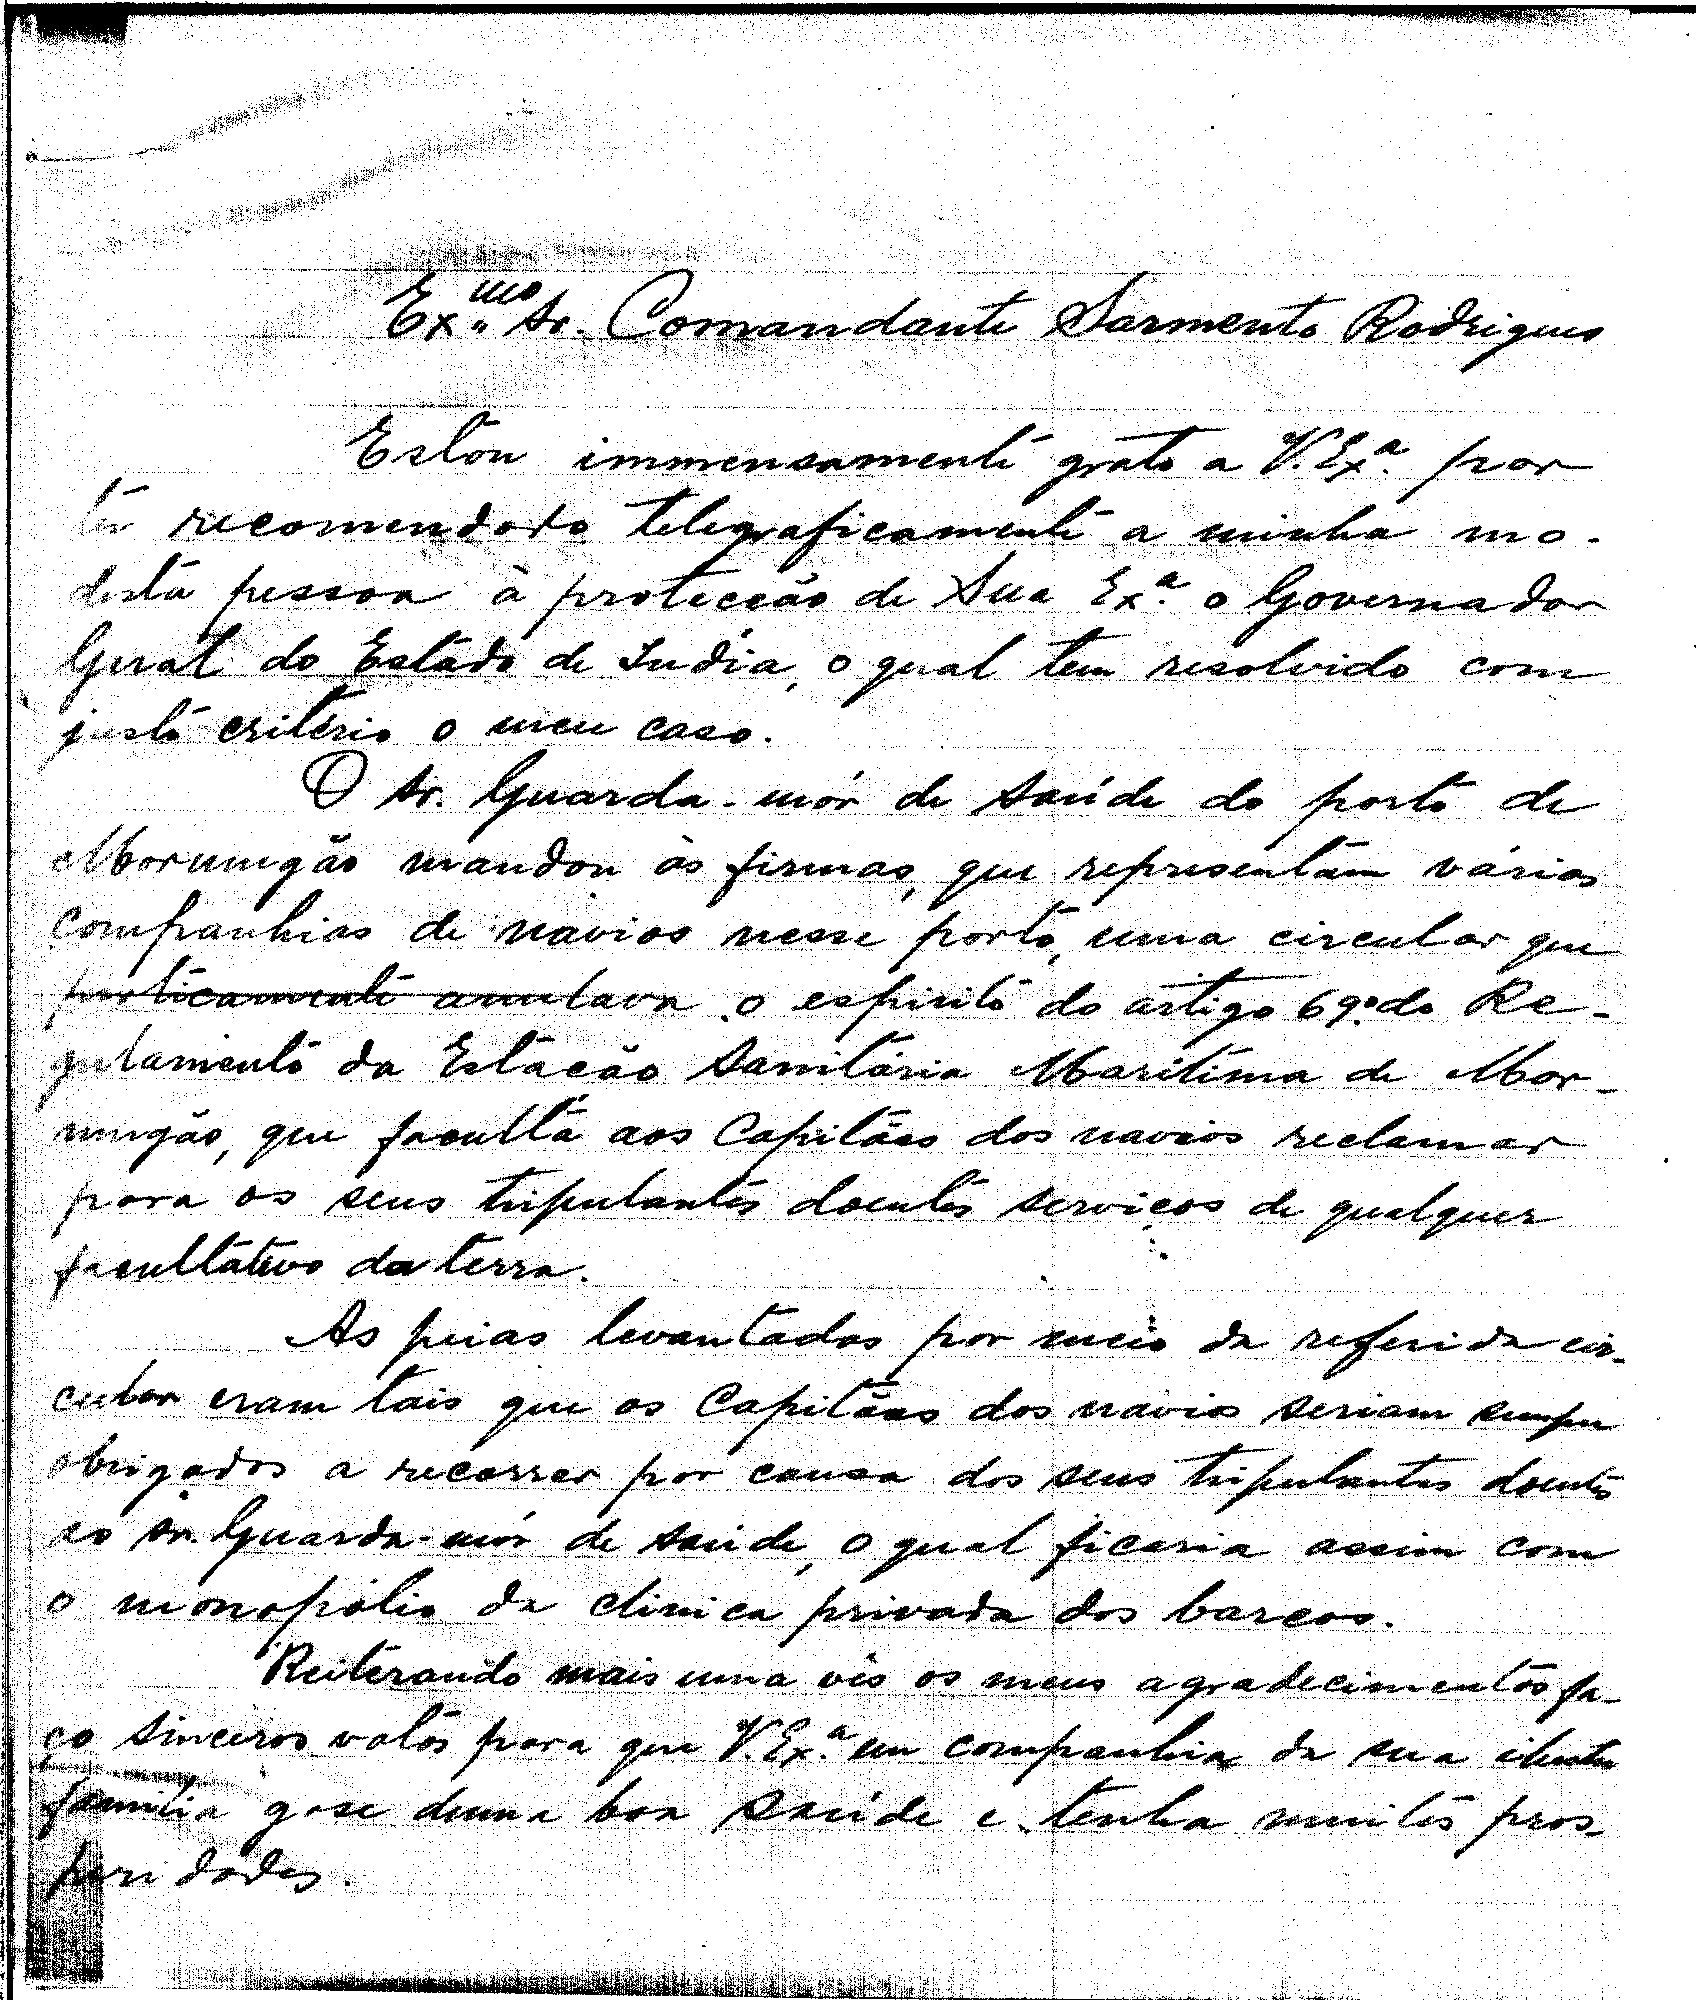 Ex.mo Sr. Comandante Sarmento Rodrigues
Estou immensamente grato a V. Ex.a por
ter recomendado telegraficamente a minha mo-
desta pessoa à protecção de Sua Ex.a o Governador
Geral do Estado de India, o qual tem resolvido com
justo critério o meu caso.
O Sr. Guarda-mór de saúde do porto de
Mormugão mandou às firmas, que representam várias
companhias de navios nesse porto, uma circular que
praticamente anulava o espirito do artigo 69.º do Re-
gulamento da Estação Sanitária Maritima de Mor-
mugão, que faculta aos Capitães dos navios reclamar
para os seus tripulantes doentes serviços de qualquer
facultativo da terra.
As peias levantadas por meio da referida cir-
cular eram tais que os Capitães dos navios seriam sempre
obrigados a recorrer por causa dos seus tripulantes doentes
ao Sr. Guarda-mór de saúde, o qual ficaria assim com
o monopólio da clinica privada dos barcos.
Reiterando mais uma vês os meus agradecimentos fa-
ço sinceros votos para que V. Ex.a em companhia da sua ilustre
familia gose duma boa saúde e tenha muitas pros-
peridades.